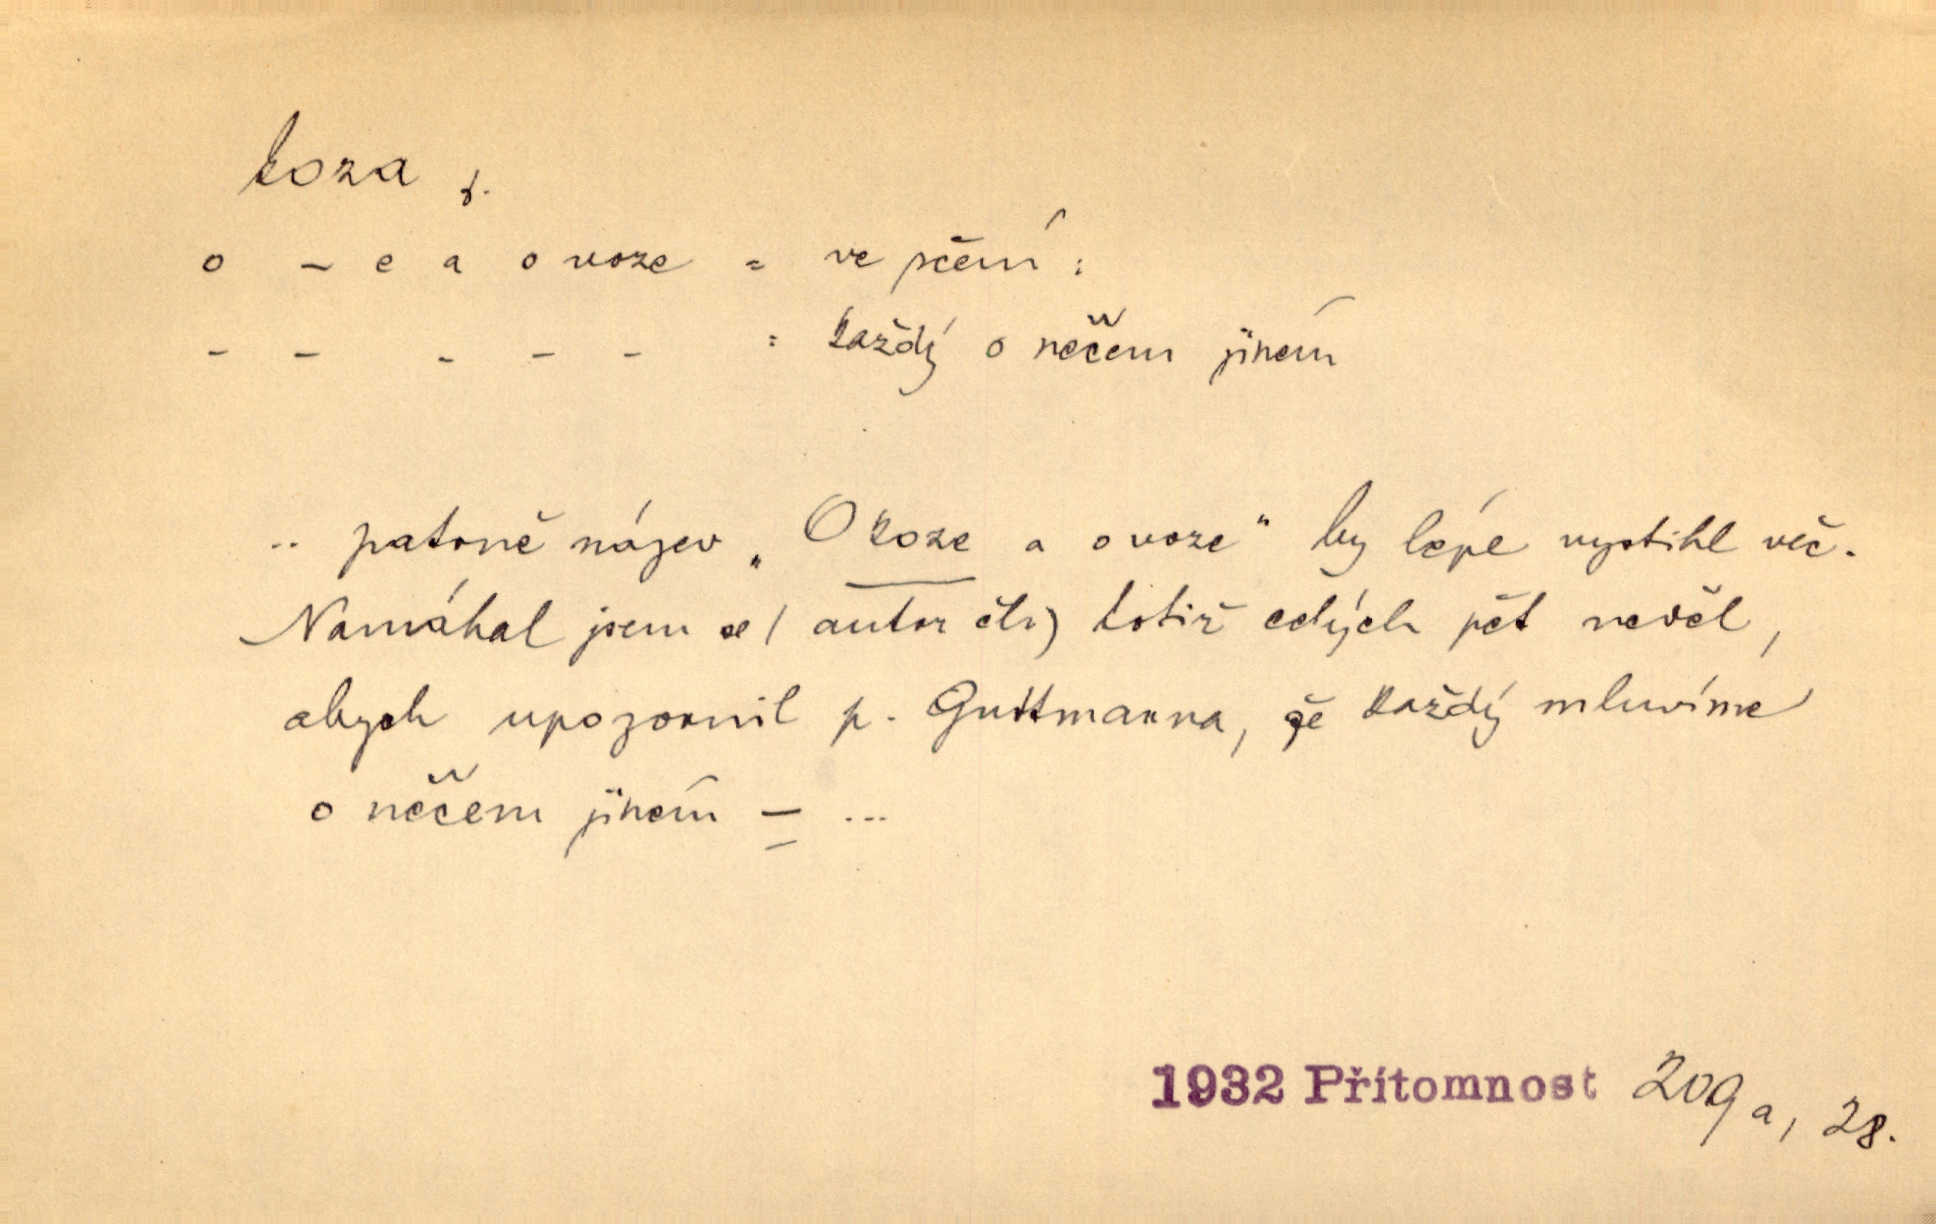 koza f.
o – e a o voze = ve rčení:
– – – – – : každý o něčem jiném
.. patrně název „O koze a o voze" by lépe vystihl věc.
Namáhal jsem se (autor čl.) totiž celých pět neděl,
abych upozornil p. Guttmanna, že každý mluvíme
o něčem jiném – ...
1932 Přítomnost 209 a, 28.